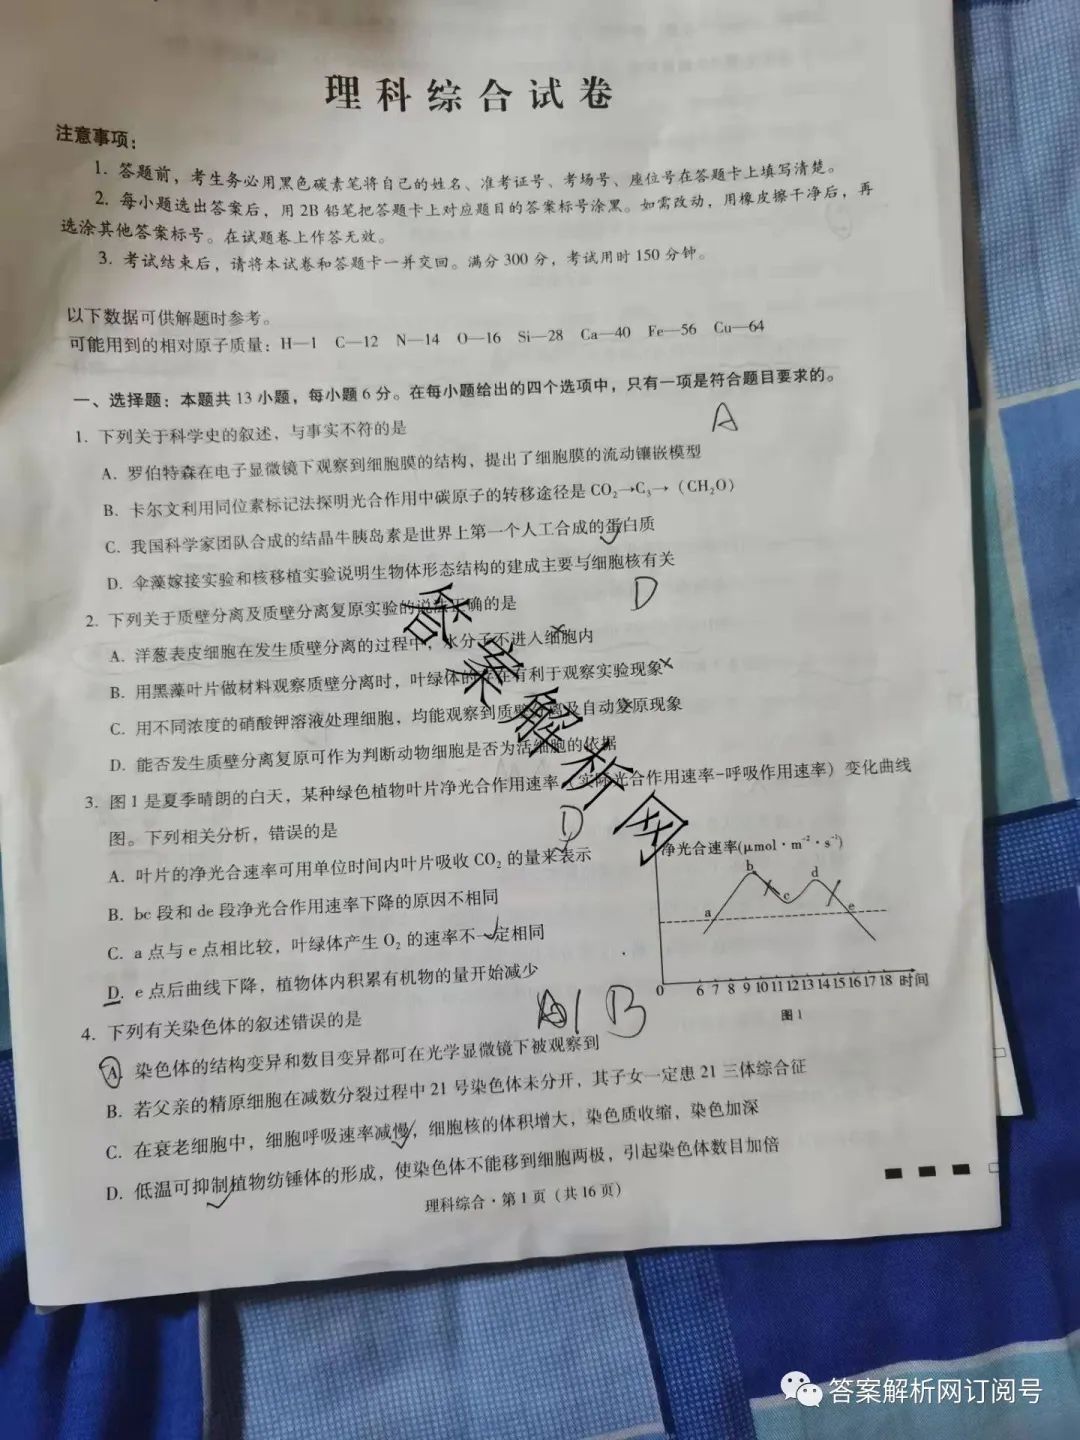 理科综合试卷
注意事项：
1. 答题前，考生务必用黑色碳素笔将自己的姓名、准考证号、考场号、座位号在答题卡上填写清楚。
2. 每小题选出答案后，用 2B 铅笔把答题卡上对应题目的答案标号涂黑。如需改动，用橡皮擦干净后，再
选涂其他答案标号。在试题卷上作答无效。
3. 考试结束后，请将本试卷和答题卡一并交回。满分 300 分，考试用时 150 分钟。
以下数据可供解题时参考。
可能用到的相对原子质量：H—1 C—12 N—14 O—16 Si—28 Ca—40 Fe—56 Cu—64
一、选择题：本题共 13 小题，每小题 6 分。在每小题给出的四个选项中，只有一项是符合题目要求的。
1. 下列关于科学史的叙述，与事实不符的是
A
A. 罗伯特森在电子显微镜下观察到细胞膜的结构，提出了细胞膜的流动镶嵌模型
B. 卡尔文利用同位素标记法探明光合作用中碳原子的转移途径是 CO₂→C₃→（CH₂O）
C. 我国科学家团队合成的结晶牛胰岛素是世界上第一个人工合成的蛋白质
D. 伞藻嫁接实验和核移植实验说明生物体形态结构的建成主要与细胞核有关
2. 下列关于质壁分离及质壁分离复原实验的说法正确的是
D
A. 洋葱表皮细胞在发生质壁分离的过程中，水分子不进入细胞内
B. 用黑藻叶片做材料观察质壁分离时，叶绿体的存在有利于观察实验现象
C. 用不同浓度的硝酸钾溶液处理细胞，均能观察到质壁分离及自动复原现象
D. 能否发生质壁分离复原可作为判断动物细胞是否为活细胞的依据
答案解析网
3. 图 1 是夏季晴朗的白天，某种绿色植物叶片净光合作用速率（实际光合作用速率-呼吸作用速率）变化曲线
图。下列相关分析，错误的是
D
A. 叶片的净光合速率可用单位时间内叶片吸收 CO₂ 的量来表示
B. bc 段和 de 段净光合作用速率下降的原因不相同
C. a 点与 e 点相比较，叶绿体产生 O₂ 的速率不一定相同
D. e 点后曲线下降，植物体内积累有机物的量开始减少
净光合速率(μmol·m⁻²·s⁻¹)
a b c d e
0 6 7 8 9 10 11 12 13 14 15 16 17 18 时间
图 1
4. 下列有关染色体的叙述错误的是
B
A. 染色体的结构变异和数目变异都可在光学显微镜下被观察到
B. 若父亲的精原细胞在减数分裂过程中 21 号染色体未分开，其子女一定患 21 三体综合征
C. 在衰老细胞中，细胞呼吸速率减慢，细胞核的体积增大，染色质收缩，染色加深
D. 低温可抑制植物纺锤体的形成，使染色体不能移到细胞两极，引起染色体数目加倍
理科综合·第 1 页（共 16 页）
答案解析网订阅号